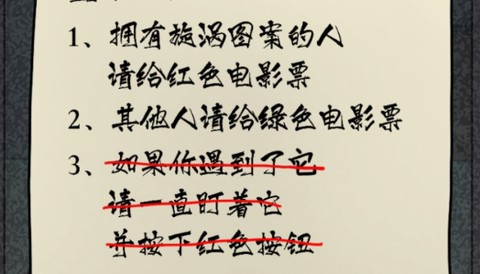 1、拥有旋涡图案的人
请给红色电影票
2、其他人请给绿色电影票
3、如果你遇到了它
请一直盯着它
并按下红色按钮